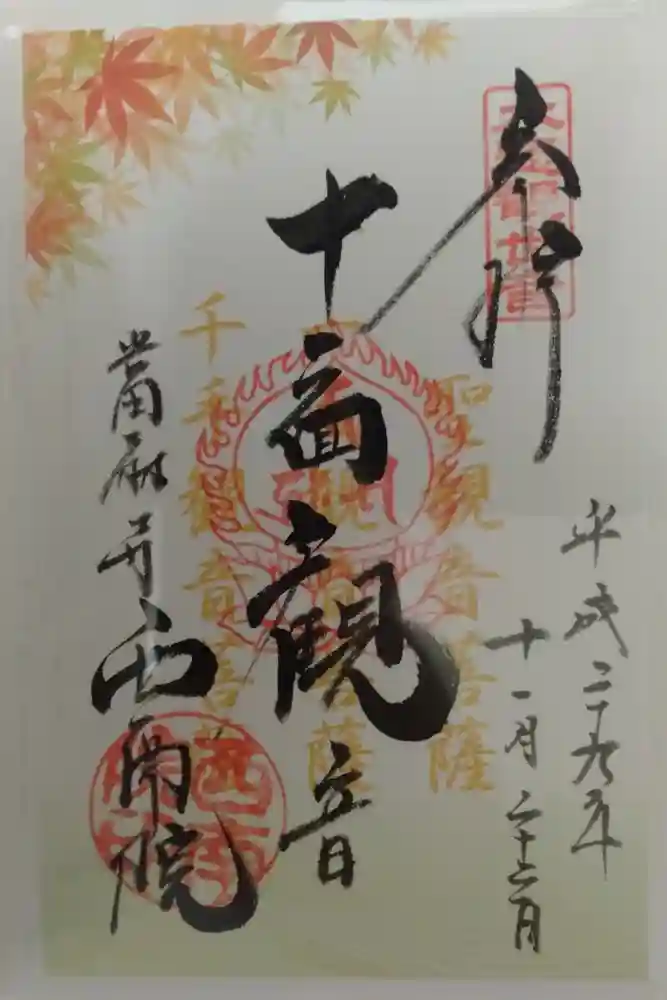 奉拝
平成二十九年
十一月二十二日
聖観音菩薩
十一面観音
千手観音菩薩
當麻寺西南院